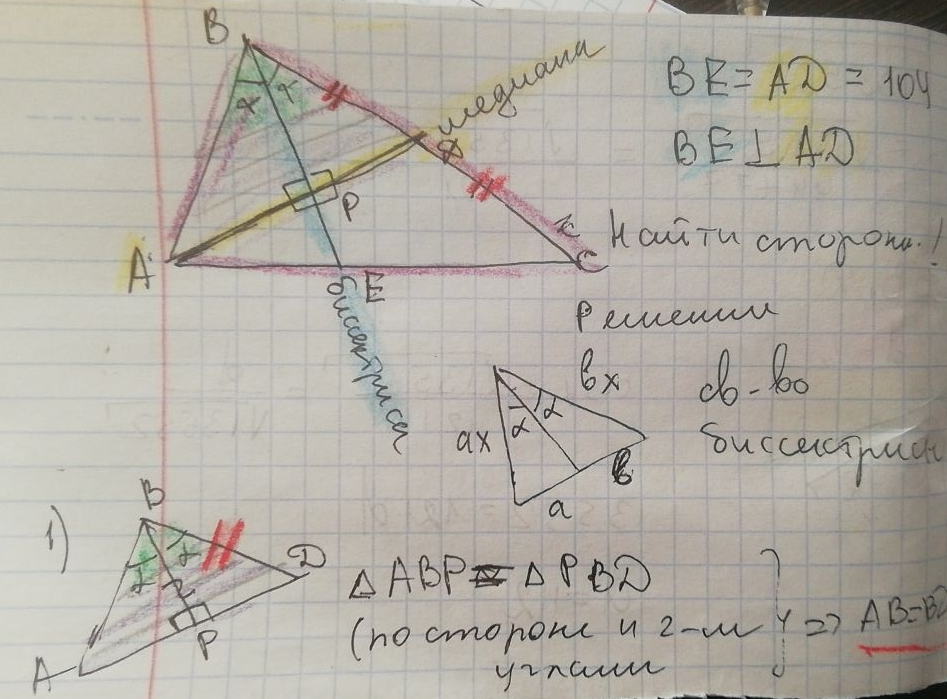 B
медиана
BE = AD = 104
α α
D
BE ⊥ AD
P
A
E
C
Найти стороны!
биссектриса
Решение
bx
ax
α α
b
a
св-во
биссектрисы
1)
B
α α
D
P
A
△ ABP = △ PBD
(по стороне и 2-м
углам
} => AB=BD